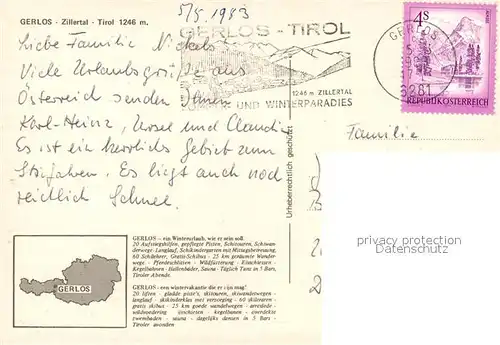 GERLOS - Zillertal - Tirol 1246 m.
5/5.1983
Liebe Familie Nickels
Viele Urlaubsgrüße aus
Österreich senden Ihnen
Karl-Heinz, Ursel und Claudia
Es ist ein herrliches Gebiet zum
Skifahren. Es liegt auch noch
reichlich Schnee.
GERLOS - TIROL
1246 m ZILLERTAL
SOMMER UND WINTERPARADIES
GERLOS
6281
4S
REPUBLIK ÖSTERREICH
Familie
Urheberrechtlich geschützt
privacy protection
Datenschutz
GERLOS
GERLOS - ein Winterurlaub, wie er sein soll.
20 Aufstiegshilfen, gepflegte Pisten, Schitouren, Schiwan-
derwege, Langlauf, Schikindergarten mit Mittagsbetreuung,
60 Schilehrer, Gratis-Schibus - 25 km geräumte Wander-
wege - Pferdeschlitten - Wildfütterung - Eisschiessen -
Kegelbahnen - Hallenbäder, Sauna - Täglich Tanz in 5 Bars,
Tiroler Abende.
GERLOS - een wintervakantie die er zijn mag!
20 liften - gladde piste's, skitouren, skiwandelwegen -
langlauf - skikinderklas met verzorging - 60 skileraren -
gratis skibus - 25 km goede wandelwegen - arreslede -
wildvoedering - ijsschieten - kegelbanen - overdekte
zwembaden - sauna - dagelijks dansen in 5 Bars -
Tiroler avonden